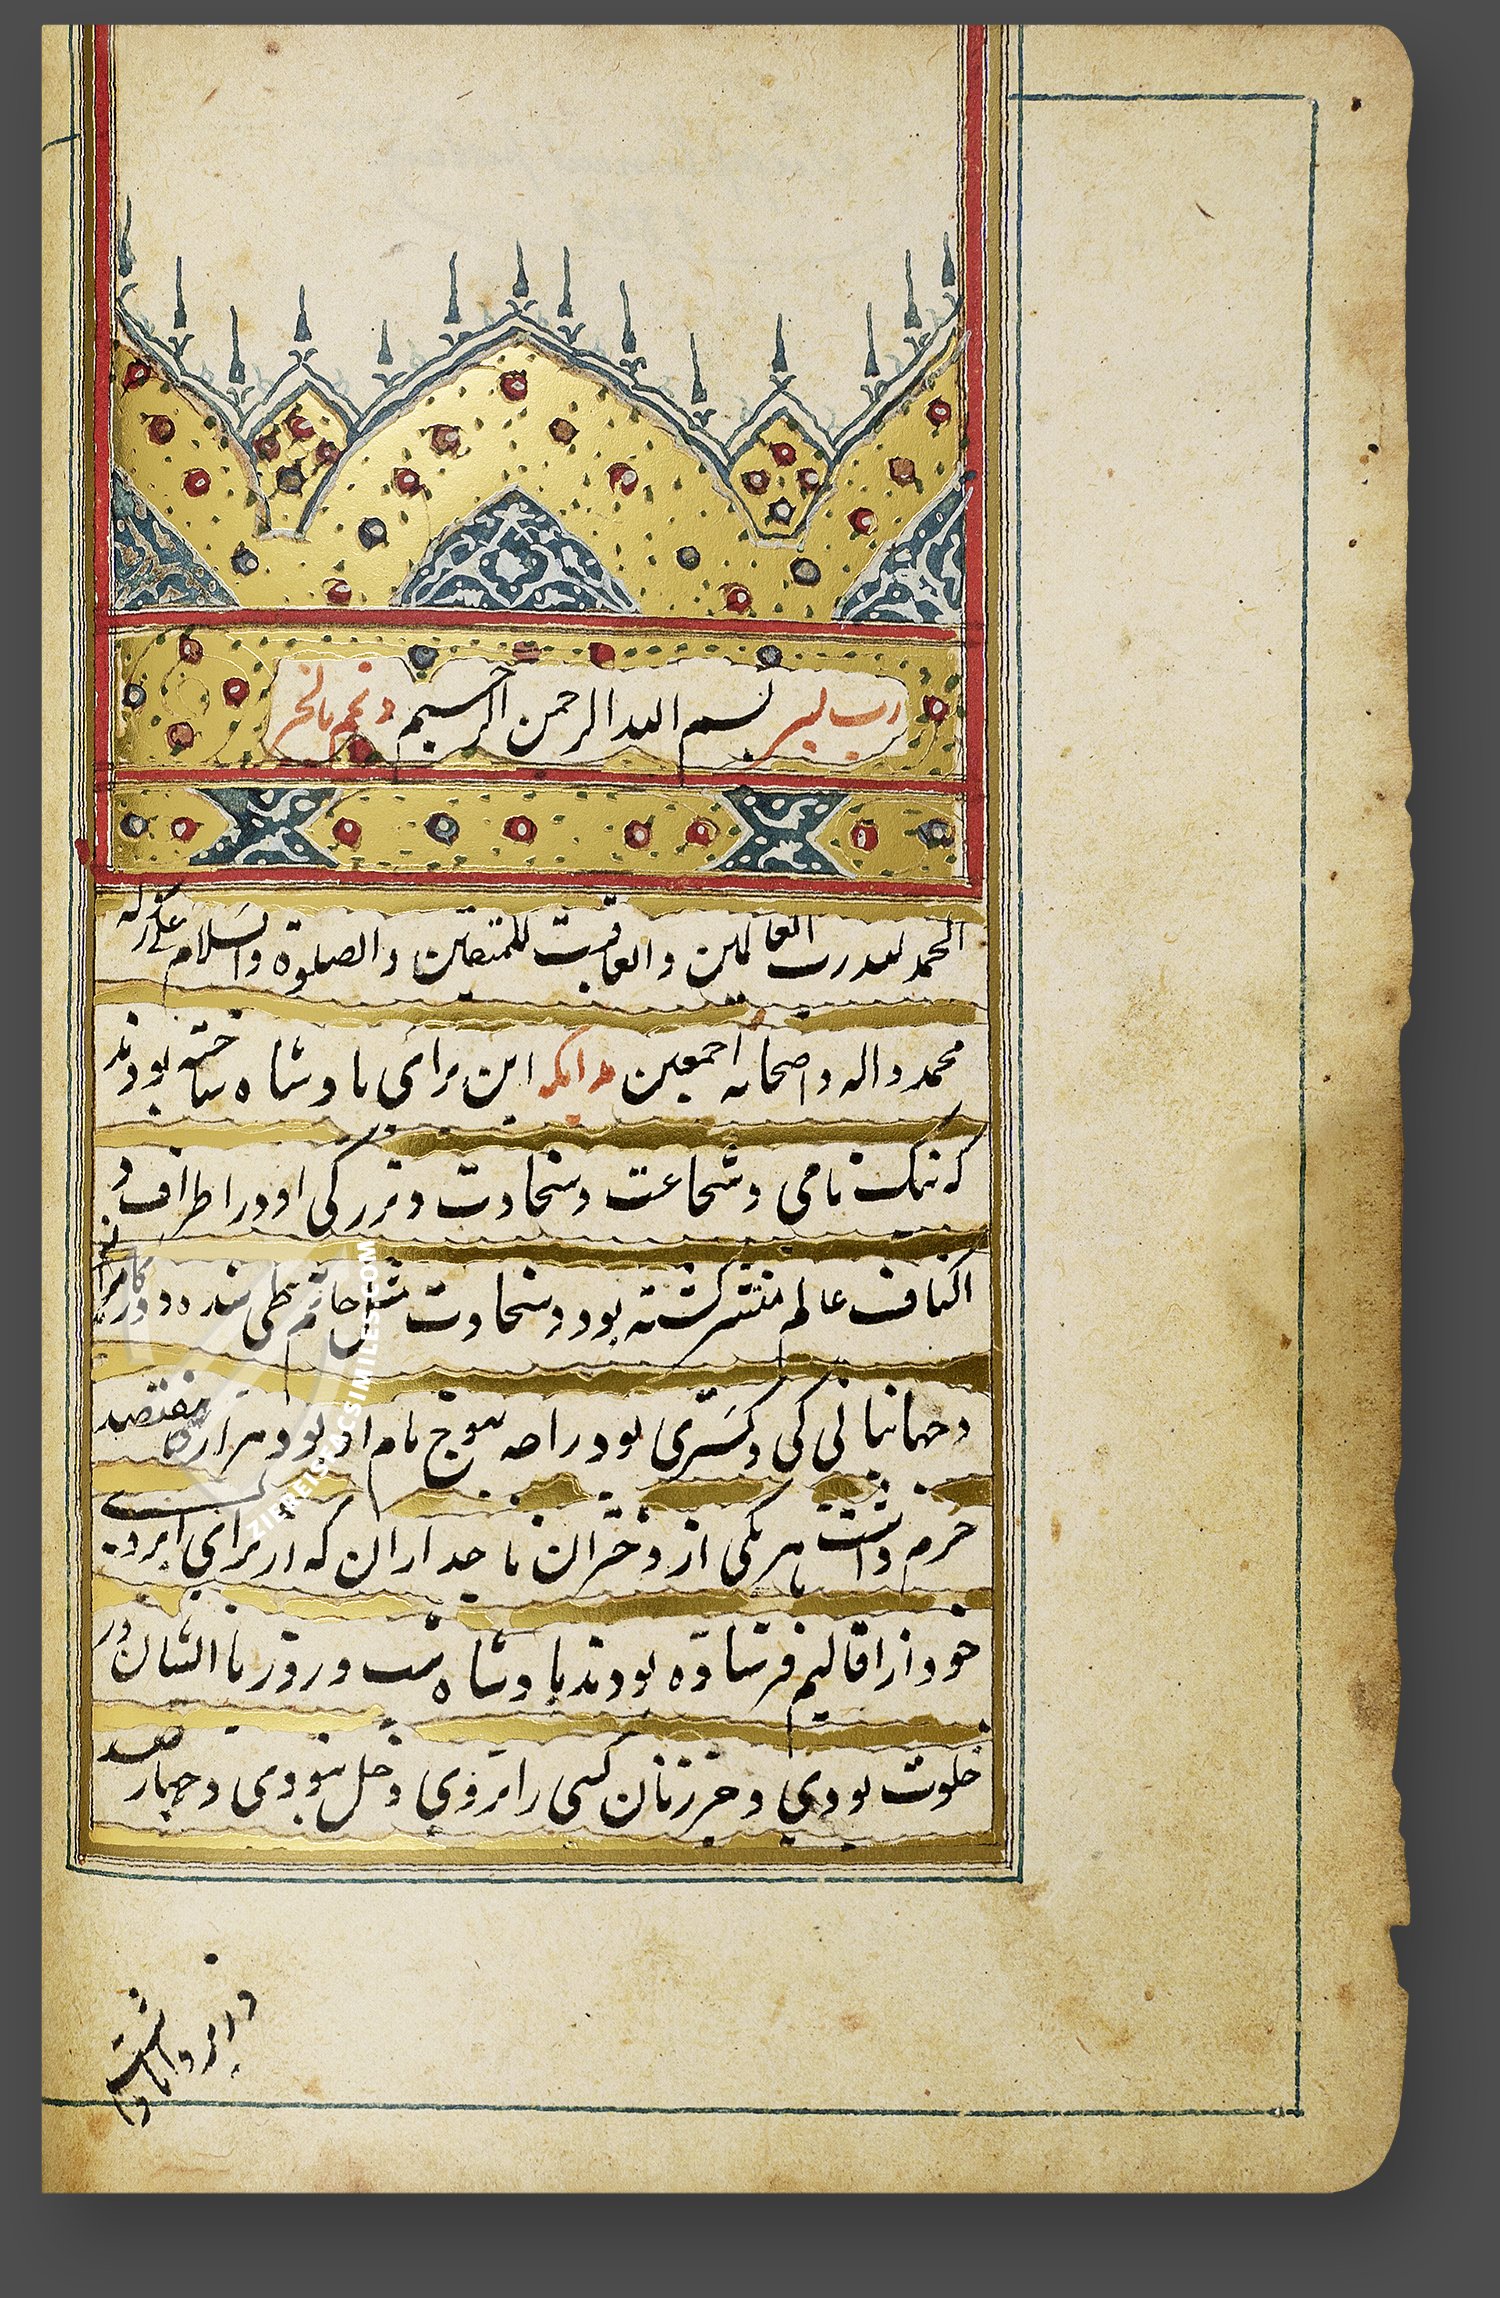 رب یسر بسم الله الرحمن الرحیم و تمم بالخیر
الحمد لله رب العالمین والعاقبت للمتقین والصلوة والسلام علی رسوله
محمد واله واصحابه اجمعین این برای پادشاه ساخته بودند
که نیک نامی و شجاعت و سخاوت و بزرگی او در اطراف و
اکناف عالم منتشر گشته بود و سخاوت مثل حاتم طی شده و در
و جهانبانی کی و کسری بود راجه بهوج نام او بود و هزار هفتصد
حرم داشت هر یکی از دختران تاجداران که از برای
خود از اقالیم فرستاده بودند پادشاه شب و روز با ایشان در
خلوت بودی و جز زنان کسی را بروی دخل نبودی و چهار صد
ZIEREISFACSIMILES.COM